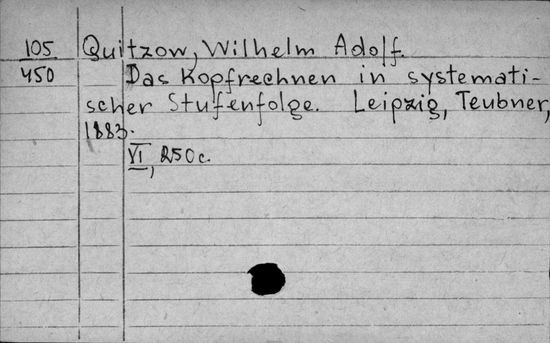 105 Quitzow, Wilhelm Adolf.
450 Das Kopfrechnen in systemati-
scher Stufenfolge. Leipzig, Teubner,
1883.
VI, 250 c.